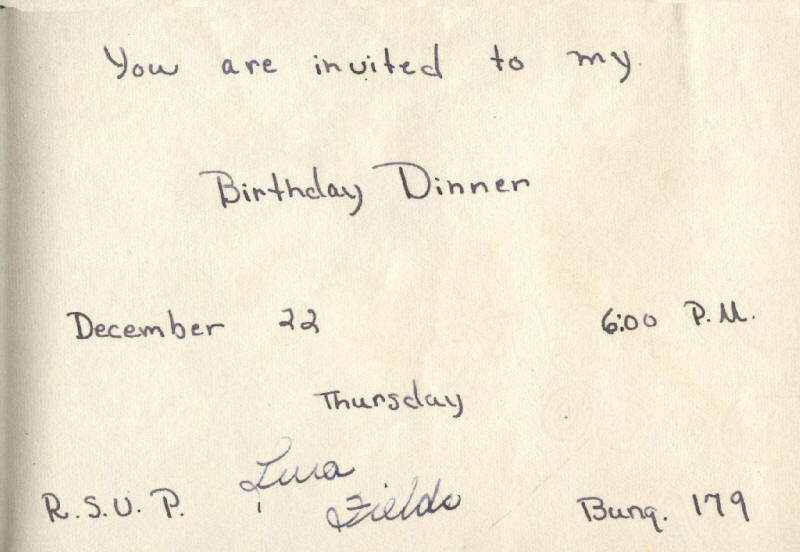 You are invited to my
Birthday Dinner
December 22 6:00 P.M.
Thursday
R.S.V.P. Lura Fields Bung. 179